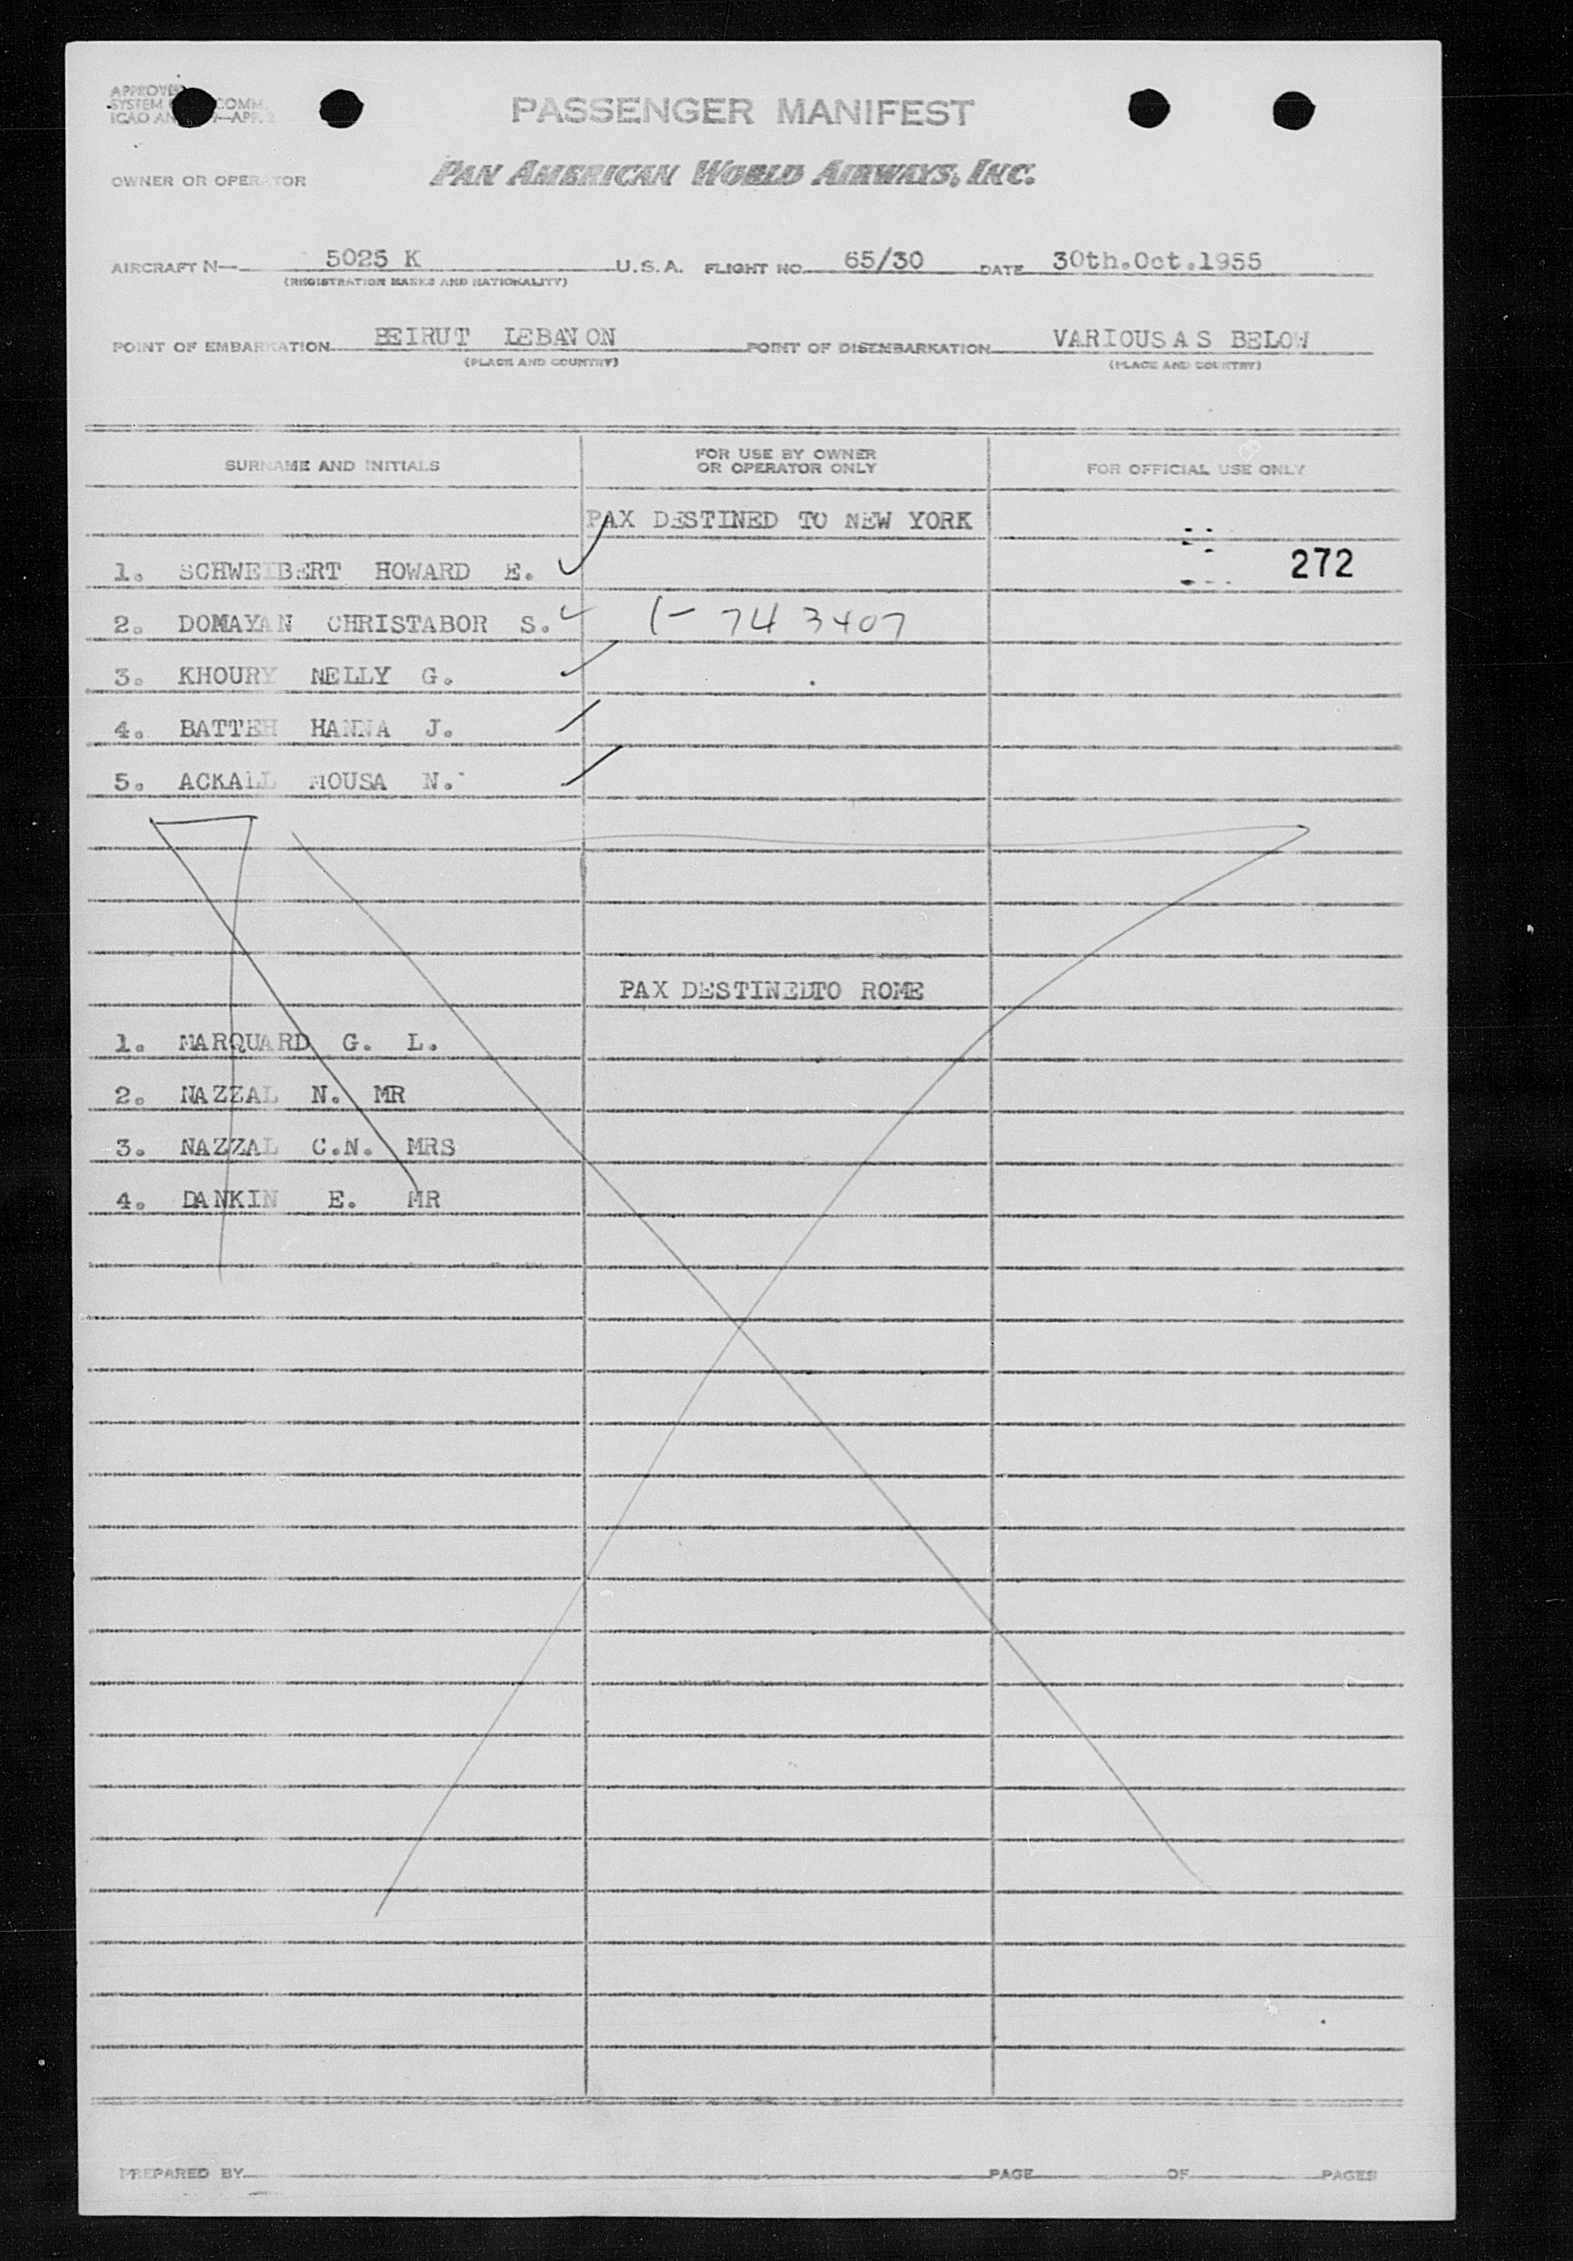 APPROVED
SYSTEM COMM.
ICAO AN —APP. 2
PASSENGER MANIFEST
OWNER OR OPERATOR PAN AMERICAN WORLD AIRWAYS, INC.
AIRCRAFT N— 5025 K U.S.A. FLIGHT NO. 65/30 DATE 30th.Oct.1955
(REGISTRATION MARKS AND NATIONALITY)
POINT OF EMBARKATION BEIRUT LEBANON POINT OF DISEMBARKATION VARIOUS AS BELOW
(PLACE AND COUNTRY) (PLACE AND COUNTRY)
SURNAME AND INITIALS FOR USE BY OWNER OR OPERATOR ONLY FOR OFFICIAL USE ONLY
PAX DESTINED TO NEW YORK
1. SCHWEIBERT HOWARD E. 272
2. DOMAYAN CHRISTABOR S. 1- 743407
3. KHOURY NELLY G.
4. BATTEH HANNA J.
5. ACKALL MOUSA N.
PAX DESTINEDTO ROME
1. MARQUARD G. L.
2. NAZZAL N. MR
3. NAZZAL C.N. MRS
4. DANKIN E. MR
PREPARED BY PAGE OF PAGES